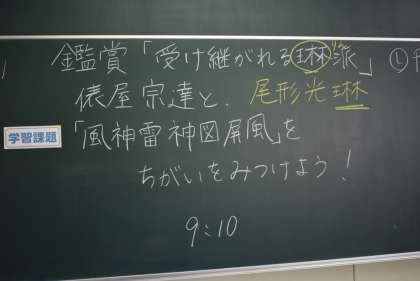 鑑賞「受け継がれる琳派」
俵屋宗達と、尾形光琳
学習課題 「風神雷神図屏風」を
ちがいをみつけよう!
9:10